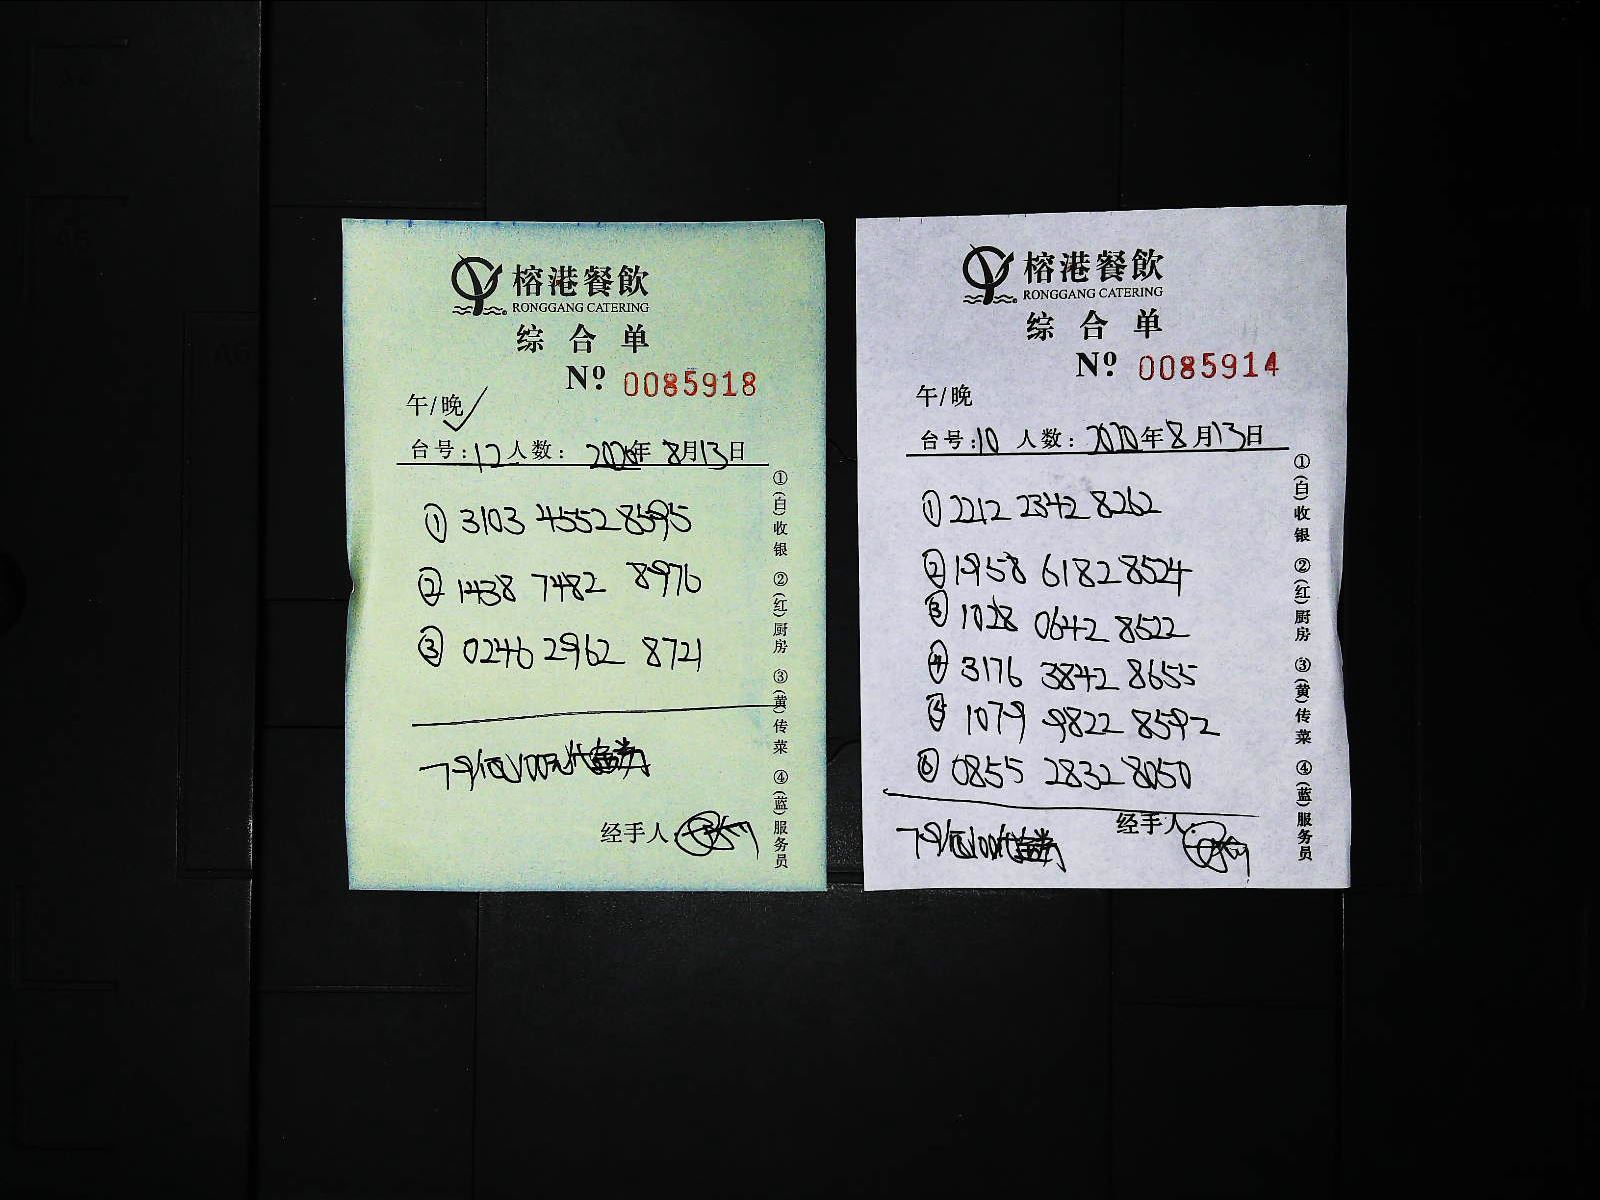 榕港餐飲
RONGGANG CATERING
综合单
Nº 0085918
午/晚
台号:12人数: 2020年 8月13日
① 3103 4552 8595
② 1438 7482 8976
③ 0246 2962 8721
79抵100元代金券
经手人:
①(白)收银 ②(红)厨房 ③(黄)传菜 ④(蓝)服务员
榕港餐飲
RONGGANG CATERING
综合单
Nº 0085914
午/晚
台号:10 人数: 2020年8月13日
① 2212 2342 8262
② 1958 6182 8524
③ 1028 0642 8522
④ 3176 3842 8655
⑤ 1079 9822 8592
⑥ 0855 2832 8050
经手人:
79抵100代金券
①(白)收银 ②(红)厨房 ③(黄)传菜 ④(蓝)服务员